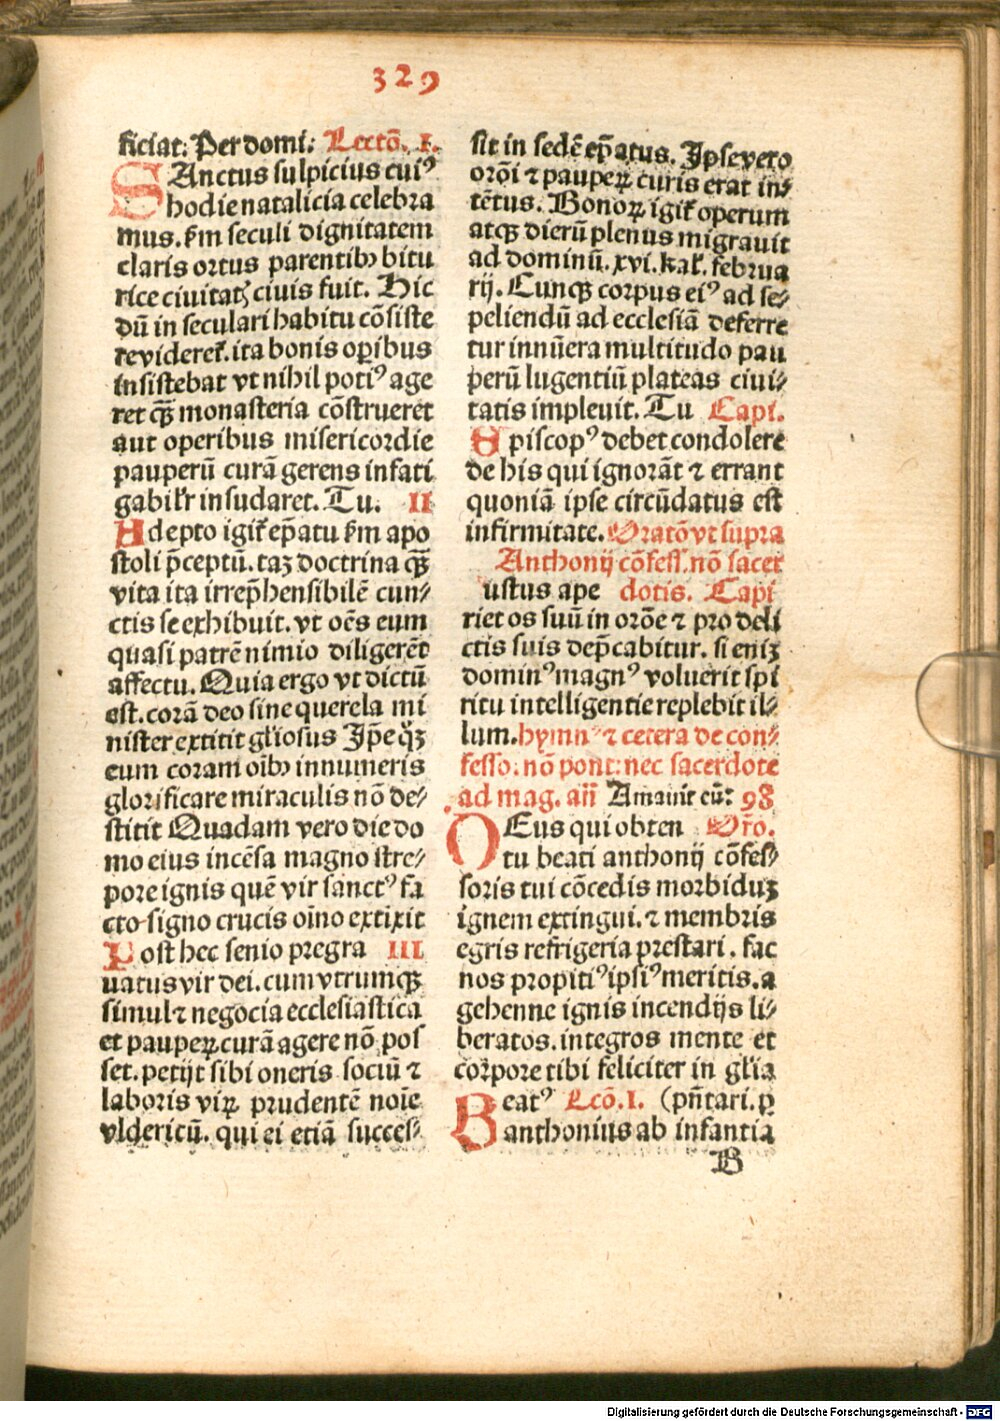 329
ficiat: Per domi: Lectō. I.
SAnctus sulpicius cuiꝰ
hodie natalicia celebra
mus. ẜm seculi dignitatem
claris ortus parentibꝫ bitu
rice ciuitatꝭ ciuis fuit. Hic
dū in seculari habitu cōsiste
re videreť. ita bonis oꝑibus
insistebat vt nihil potiꝰ age
ret qꝫ̄ monasteria cōstrueret
aut operibus misericordie
pauperū curā gerens infati
gabilr̄ insudaret. Tu. II
Adepto igiť ep̄atu ẜm apo
stoli p̄ceptū. taꝫ doctrina qꝫ̄
vita ita irrep̄hensibilē cun⸗
ctis se exhibuit. vt oēs eum
quasi patrē nimio diligerēt
affectu. Quia ergo vt dictū
est. corā deo sine querela mi
nister extitit gl̄iosus Ip̄e q̄ꝫ
eum coram oībꝫ innumeris
glorificare miraculis nō de⸗
stitit Quadam vero die do
mo eius incēsa magno stre⸗
pore ignis quē vir sanctꝰ fa
cto signo crucis oīno extixit
Post hec senio pregra III
uatus vir dei. cum vtrumqꝫ
simul ⁊ negocia ecclesiastica
et pauperꝝ curā agere nō pos
set. petijt sibi oneris sociū ⁊
laboris virꝝ prudentē noīe
vldericū. qui ei etiā succes⸗
sit in sedē ep̄atus. Ipse vero
orōi ⁊ pauperꝝ curis erat in⸗
tētus. Bonoꝝ igiť operum
atqꝫ dierū plenus migrauit
ad dominū. xvi. kal̄. februa
rij. Cunqꝫ corpus eiꝰ ad se⸗
peliendū ad ecclesiā deferre
tur innūera multitudo pau
perū lugentiū plateas ciui⸗
tatis impleuit. Tu Capi.
Episcopꝰ debet condolere
de his qui ignorāt ⁊ errant
quoniā ipse circūdatus est
infirmitate. Oratō vt supra
Anthonij cōfess. nō sacer
ustus ape dotis. Capi
riet os suū in orōe ⁊ pro deli
ctis suis dep̄cabitur. si eniꝫ
dominꝰ magnꝰ voluerit spi
ritu intelligentie replebit il⸗
lum. hymnꝰ ⁊ cetera de con⸗
fesso. nō pont. nec sacerdote
ad mag. añ Amauit eū: 98
DEus qui obten Or̄o.
tu beati anthonij cōfes⸗
soris tui cōcedis morbiduꝫ
ignem extingui. ⁊ membris
egris refrigeria prestari. fac
nos propitiꝰ ipsiꝰ meritis. a
gehenne ignis incendijs li⸗
beratos. integros mente et
corpore tibi feliciter in gl̄ia
Beatꝰ Lcō. I. (pn̄tari. ꝑ
anthonius ab infantia
B
Digitalisierung gefördert durch die Deutsche Forschungsgemeinschaft - DFG